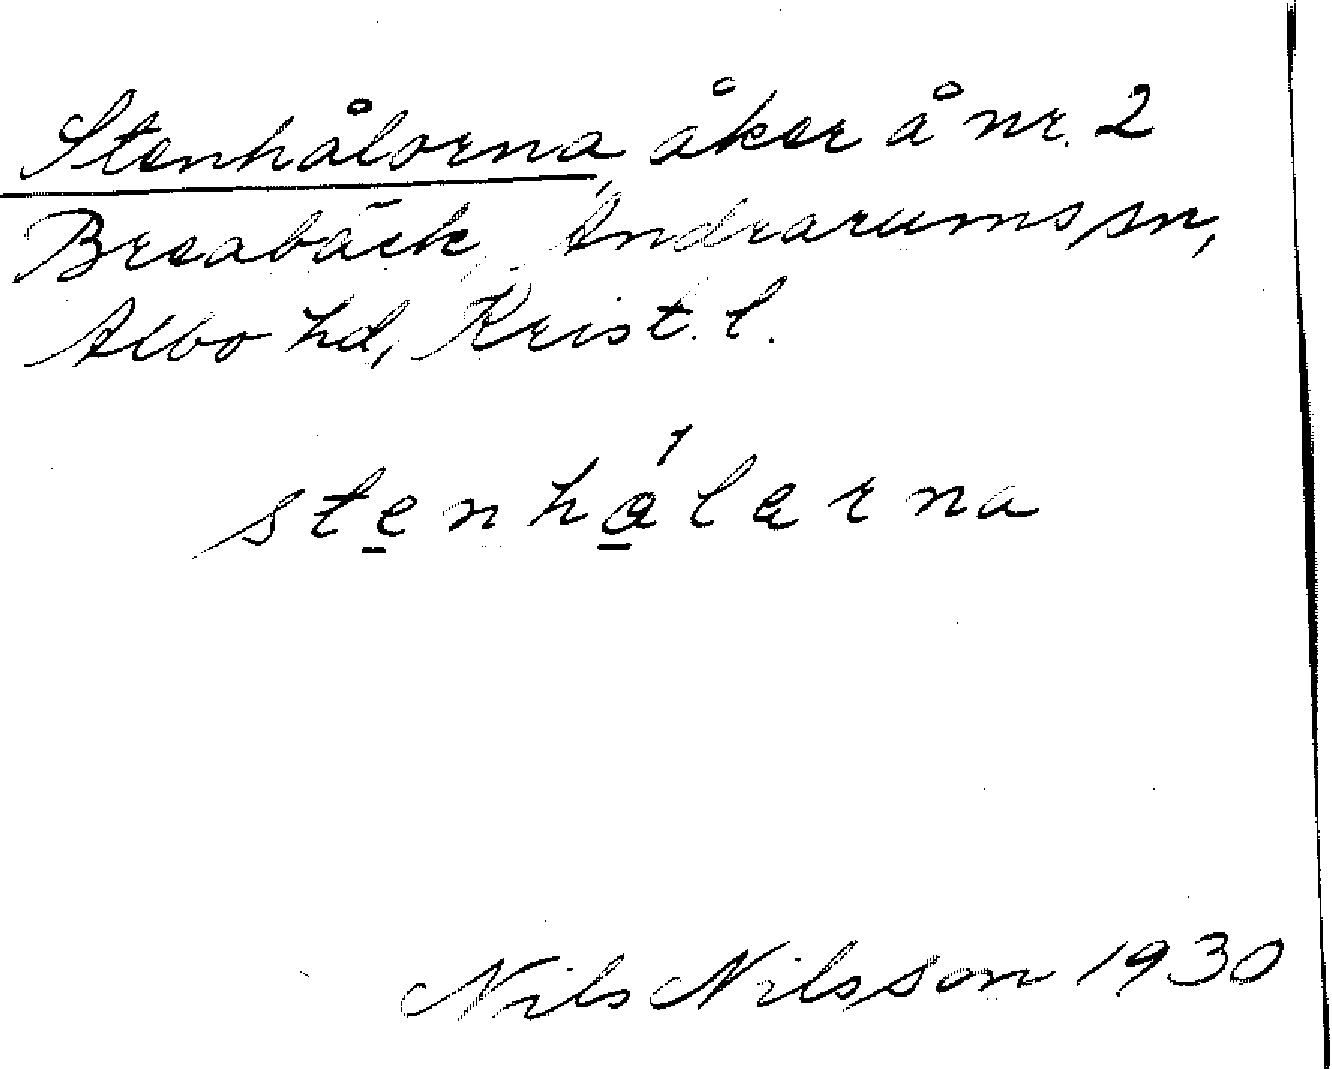 Stenhålorna, åker å nr. 2
Breabäck, Andrarums sn,
Albo hd, Krist. l.
stenhålarna
Nils Nilsson 1930